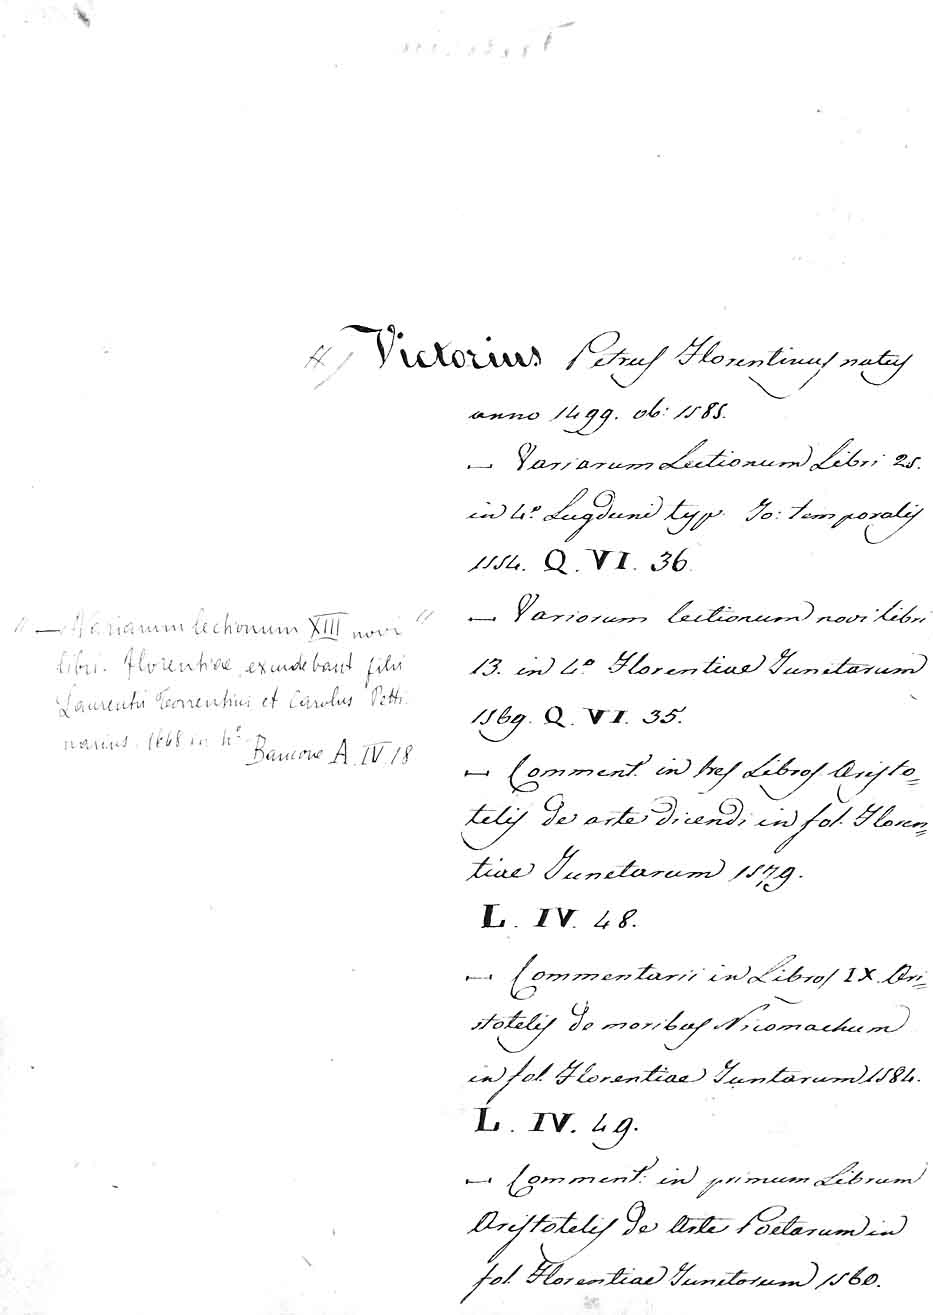 Victorius Petrus Florentinus natus
anno 1499. ob: 1585.
— Variarum Lectionum Libri 25.
in 4.º Lugduni typ. Jo: temporalis
1554. Q. VI. 36.
— Variorum lectionum novi libri
13. in 4.º Florentiae Junctarum
1569. Q. VI. 35.
— Comment. in tres Libros Aristo=
telis de arte dicendi in fol. Floren=
tiae Junctarum 1579.
L. IV. 48.
— Commentarii in Libros IX. Ari=
stotelis de moribus Nicomachum
in fol. Florentiae Juntarum 1584.
L. IV. 49.
— Comment. in primum Librum
Aristotelis de Arte Poetarum in
fol. Florentiae Junctorum 1560.
" — Variarum lectionum XIII novi "
libri. Florentiae, excudebant filii
Laurentii Torrentini et Carolus Petti
narius. 1668 in 4.º
Bancone A. IV. 18